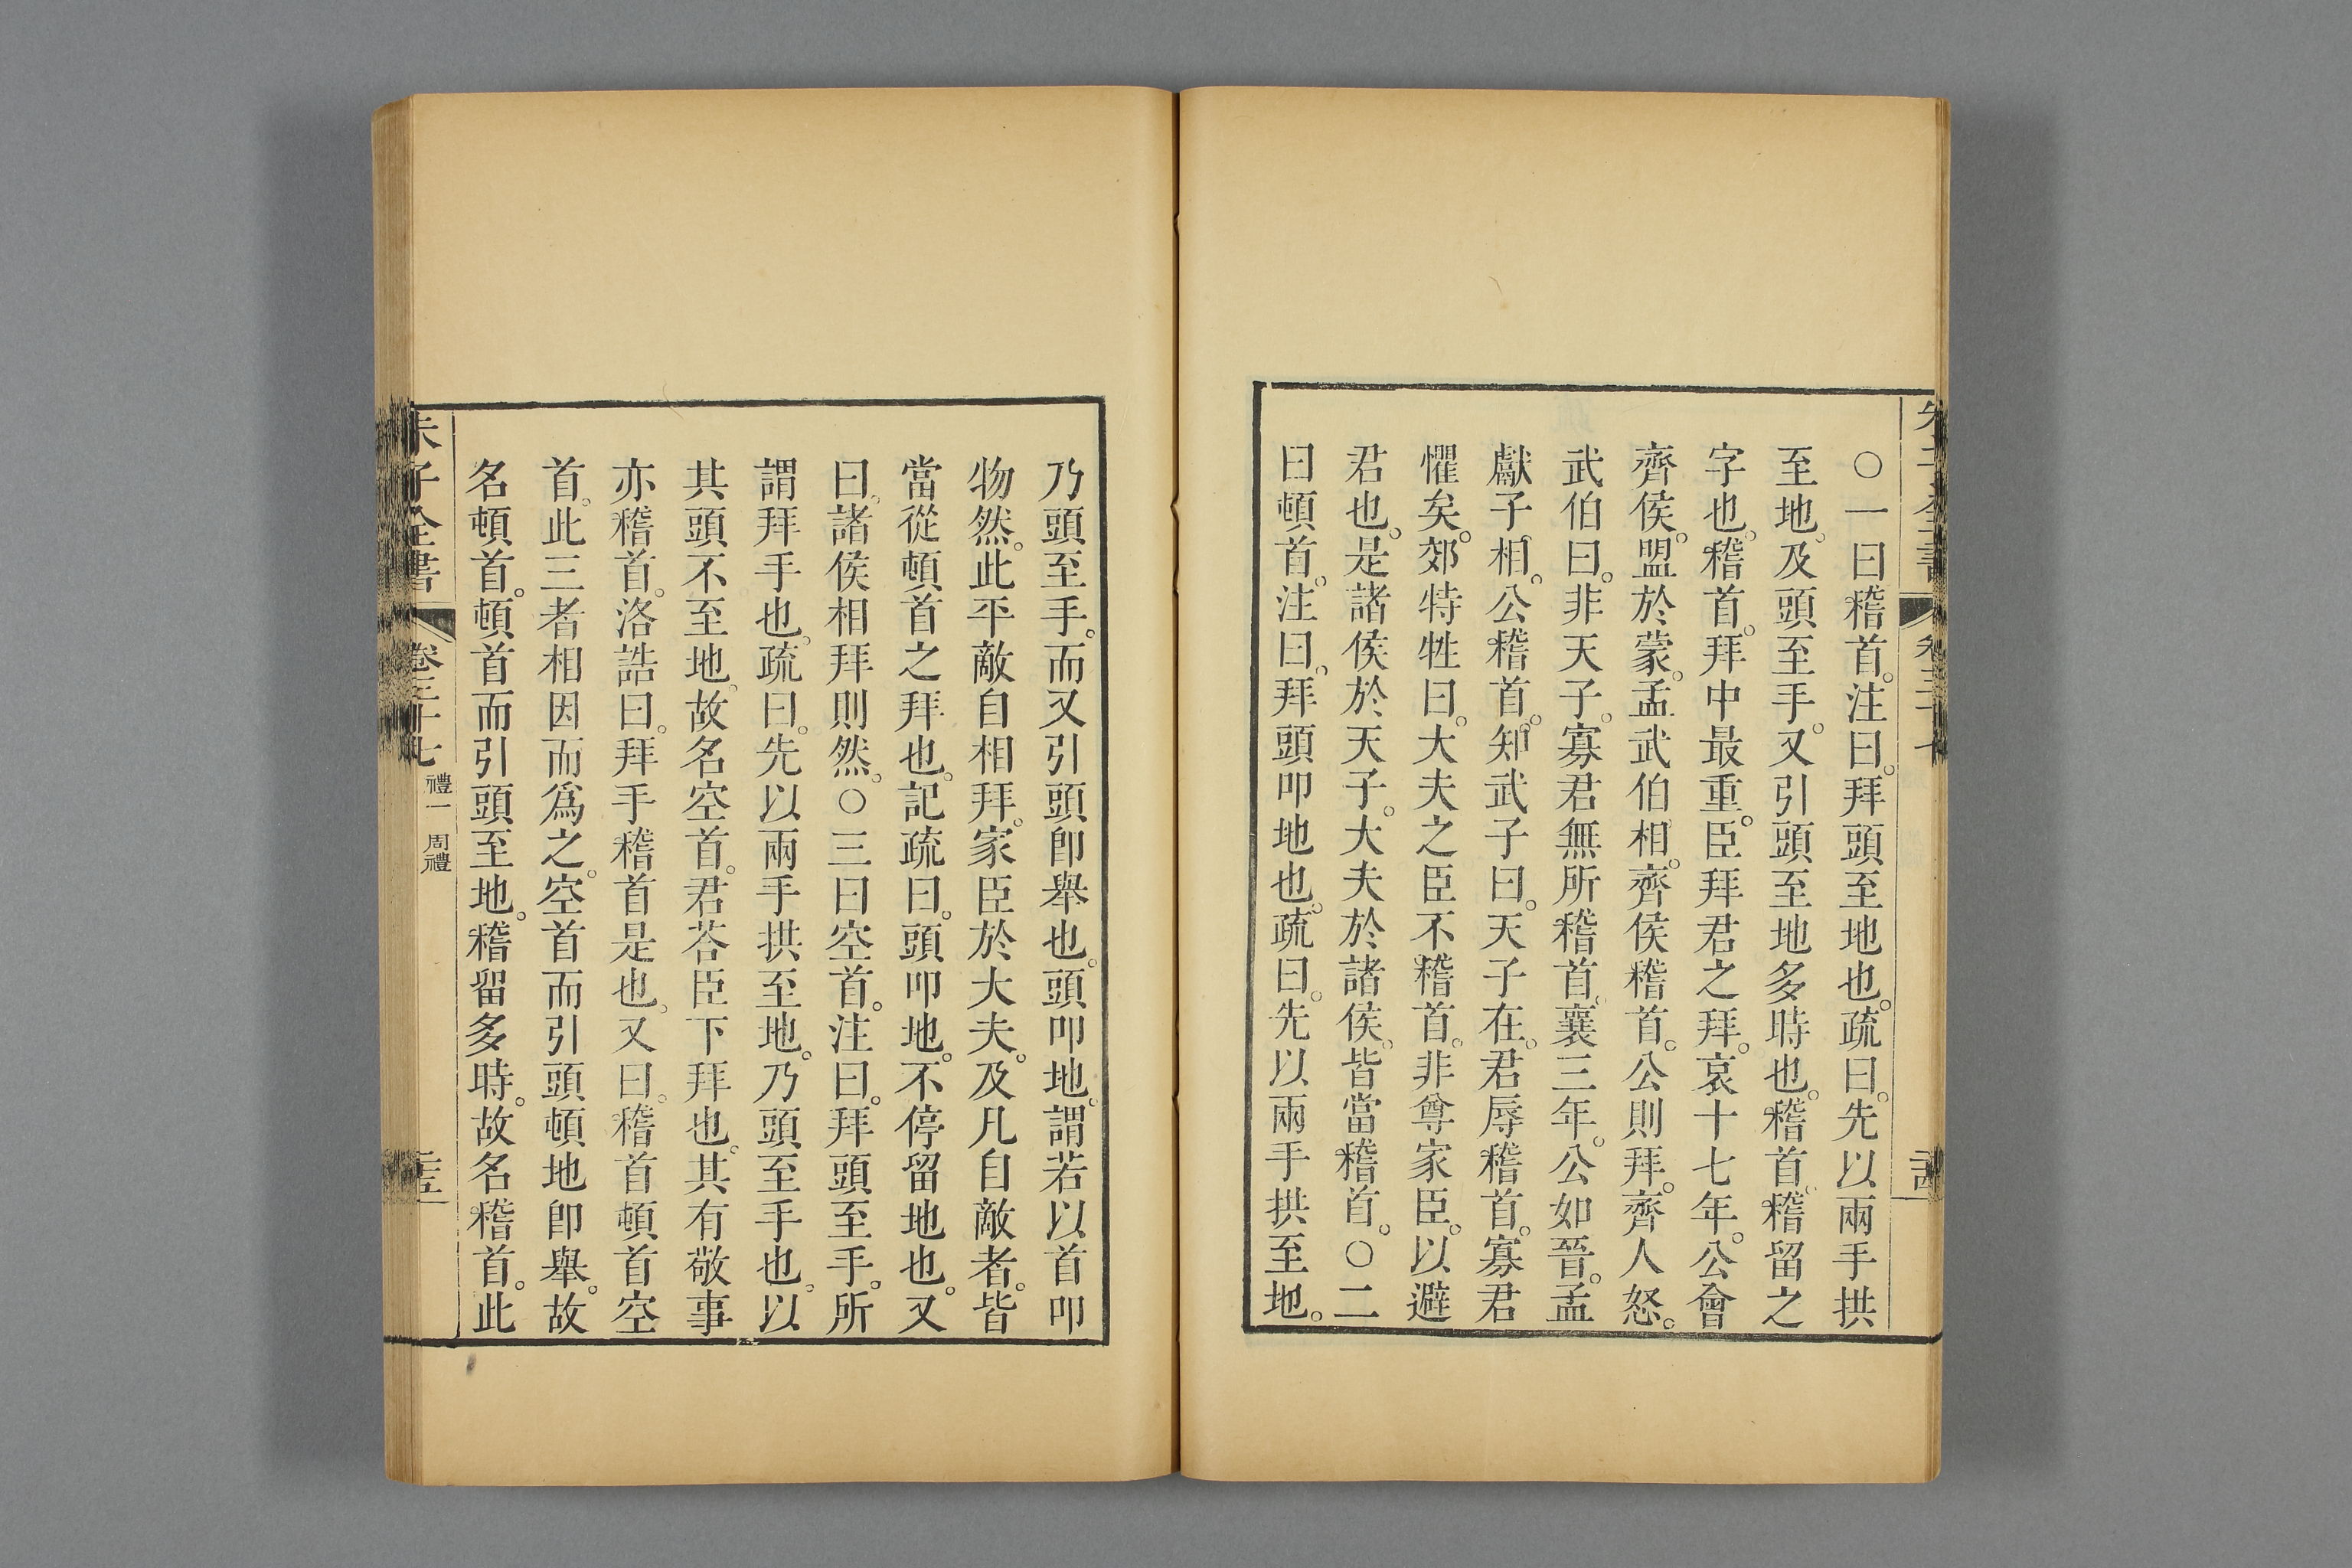 ○一曰稽首。注曰。拜頭至地也。疏曰。先以兩手拱
至地。及頭至手。又引頭至地多時也。稽首稽留之
字也。稽首。拜中最重。臣拜君之拜。哀十七年。公會
齊侯。盟於蒙。孟武伯相。齊侯稽首。公則拜。齊人怒。
武伯曰。非天子。寡君無所稽首。襄三年。公如晉。孟
獻子相。公稽首。知武子曰。天子在。君辱稽首。寡君
懼矣。郊特牲曰。大夫之臣不稽首。非尊家臣。以避
君也。是諸侯於天子。大夫於諸侯。皆當稽首。○二
曰頓首。注曰。拜頭叩地也。疏曰。先以兩手拱至地。
乃頭至手。而又引頭卽舉也。頭叩地。謂若以首叩
物然。此平敵自相拜。家臣於大夫。及凡自敵者。皆
當從頓首之拜也。記疏曰。頭叩地。不停留地也。又
曰。諸侯相拜則然。○三曰空首。注曰。拜頭至手。所
謂拜手也。疏曰。先以兩手拱至地。乃頭至手也。以
其頭不至地。故名空首。君荅臣下拜也。其有敬事
亦稽首。洛誥曰。拜手稽首是也。又曰。稽首頓首空
首。此三者相因而爲之。空首而引頭頓地卽舉。故
名頓首。頓首而引頭至地。稽留多時。故名稽首。此
朱子全書 卷三十七 禮一 周禮 二十五